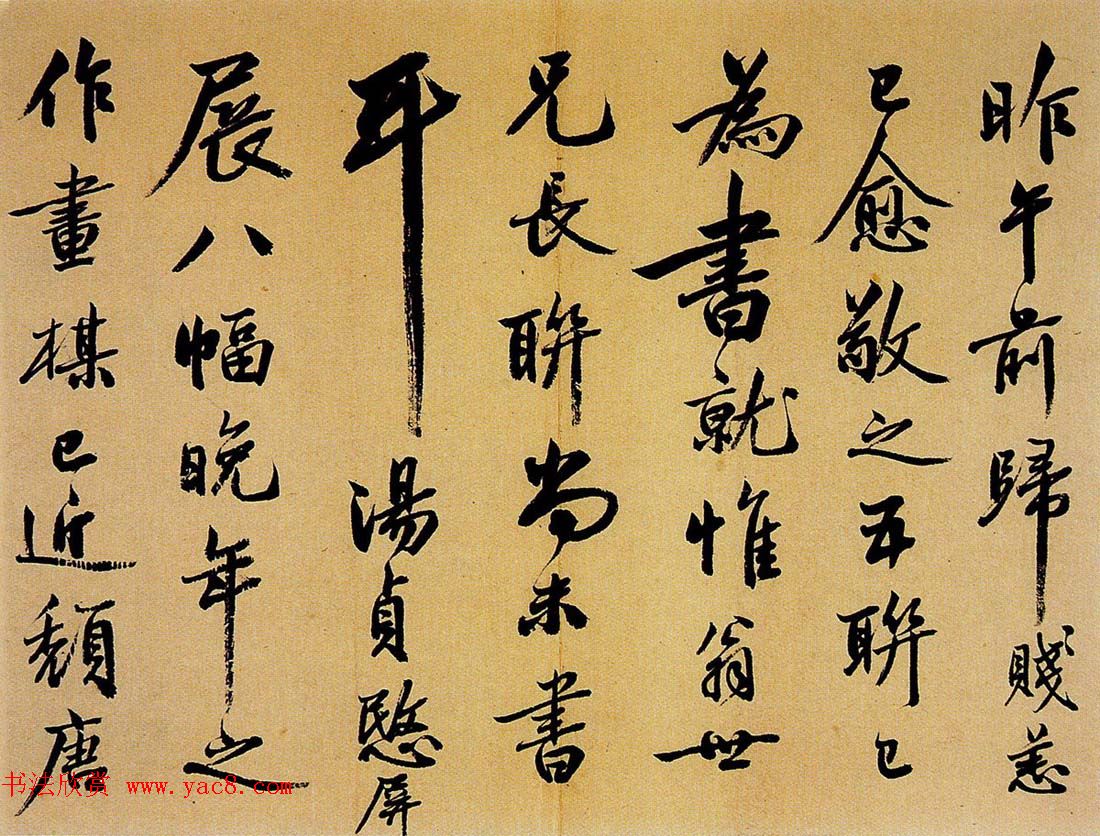 昨午前歸賤恙
已愈敬之五聯已
為書就惟翁世
兄長聯尚未書
耳湯貞愍屏
展八幅晚年之
作畫楳已近頹唐
书法欣赏 www.yac8.com